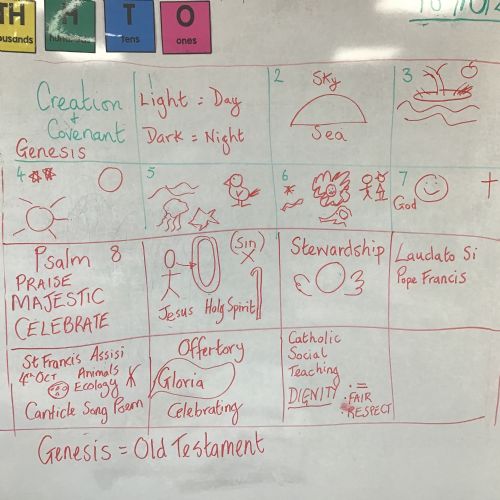 TH
H
T
O
thousands
hundreds
tens
ones
Creation
+
Covenant
Genesis
1
Light = Day
Dark = Night
2
Sky
Sea
3
4
5
6
7
God
Psalm 8
PRAISE
MAJESTIC
CELEBRATE
(Sin)
Jesus Holy Spirit
Stewardship
Laudato Si
Pope Francis
St Francis Assisi
4th Oct Animals
Ecology
Canticle Song Poem
Offertory
Gloria
Celebrating
Catholic
Social
Teaching
DIGNITY
· =
· FAIR
· RESPECT
Genesis = Old Testament